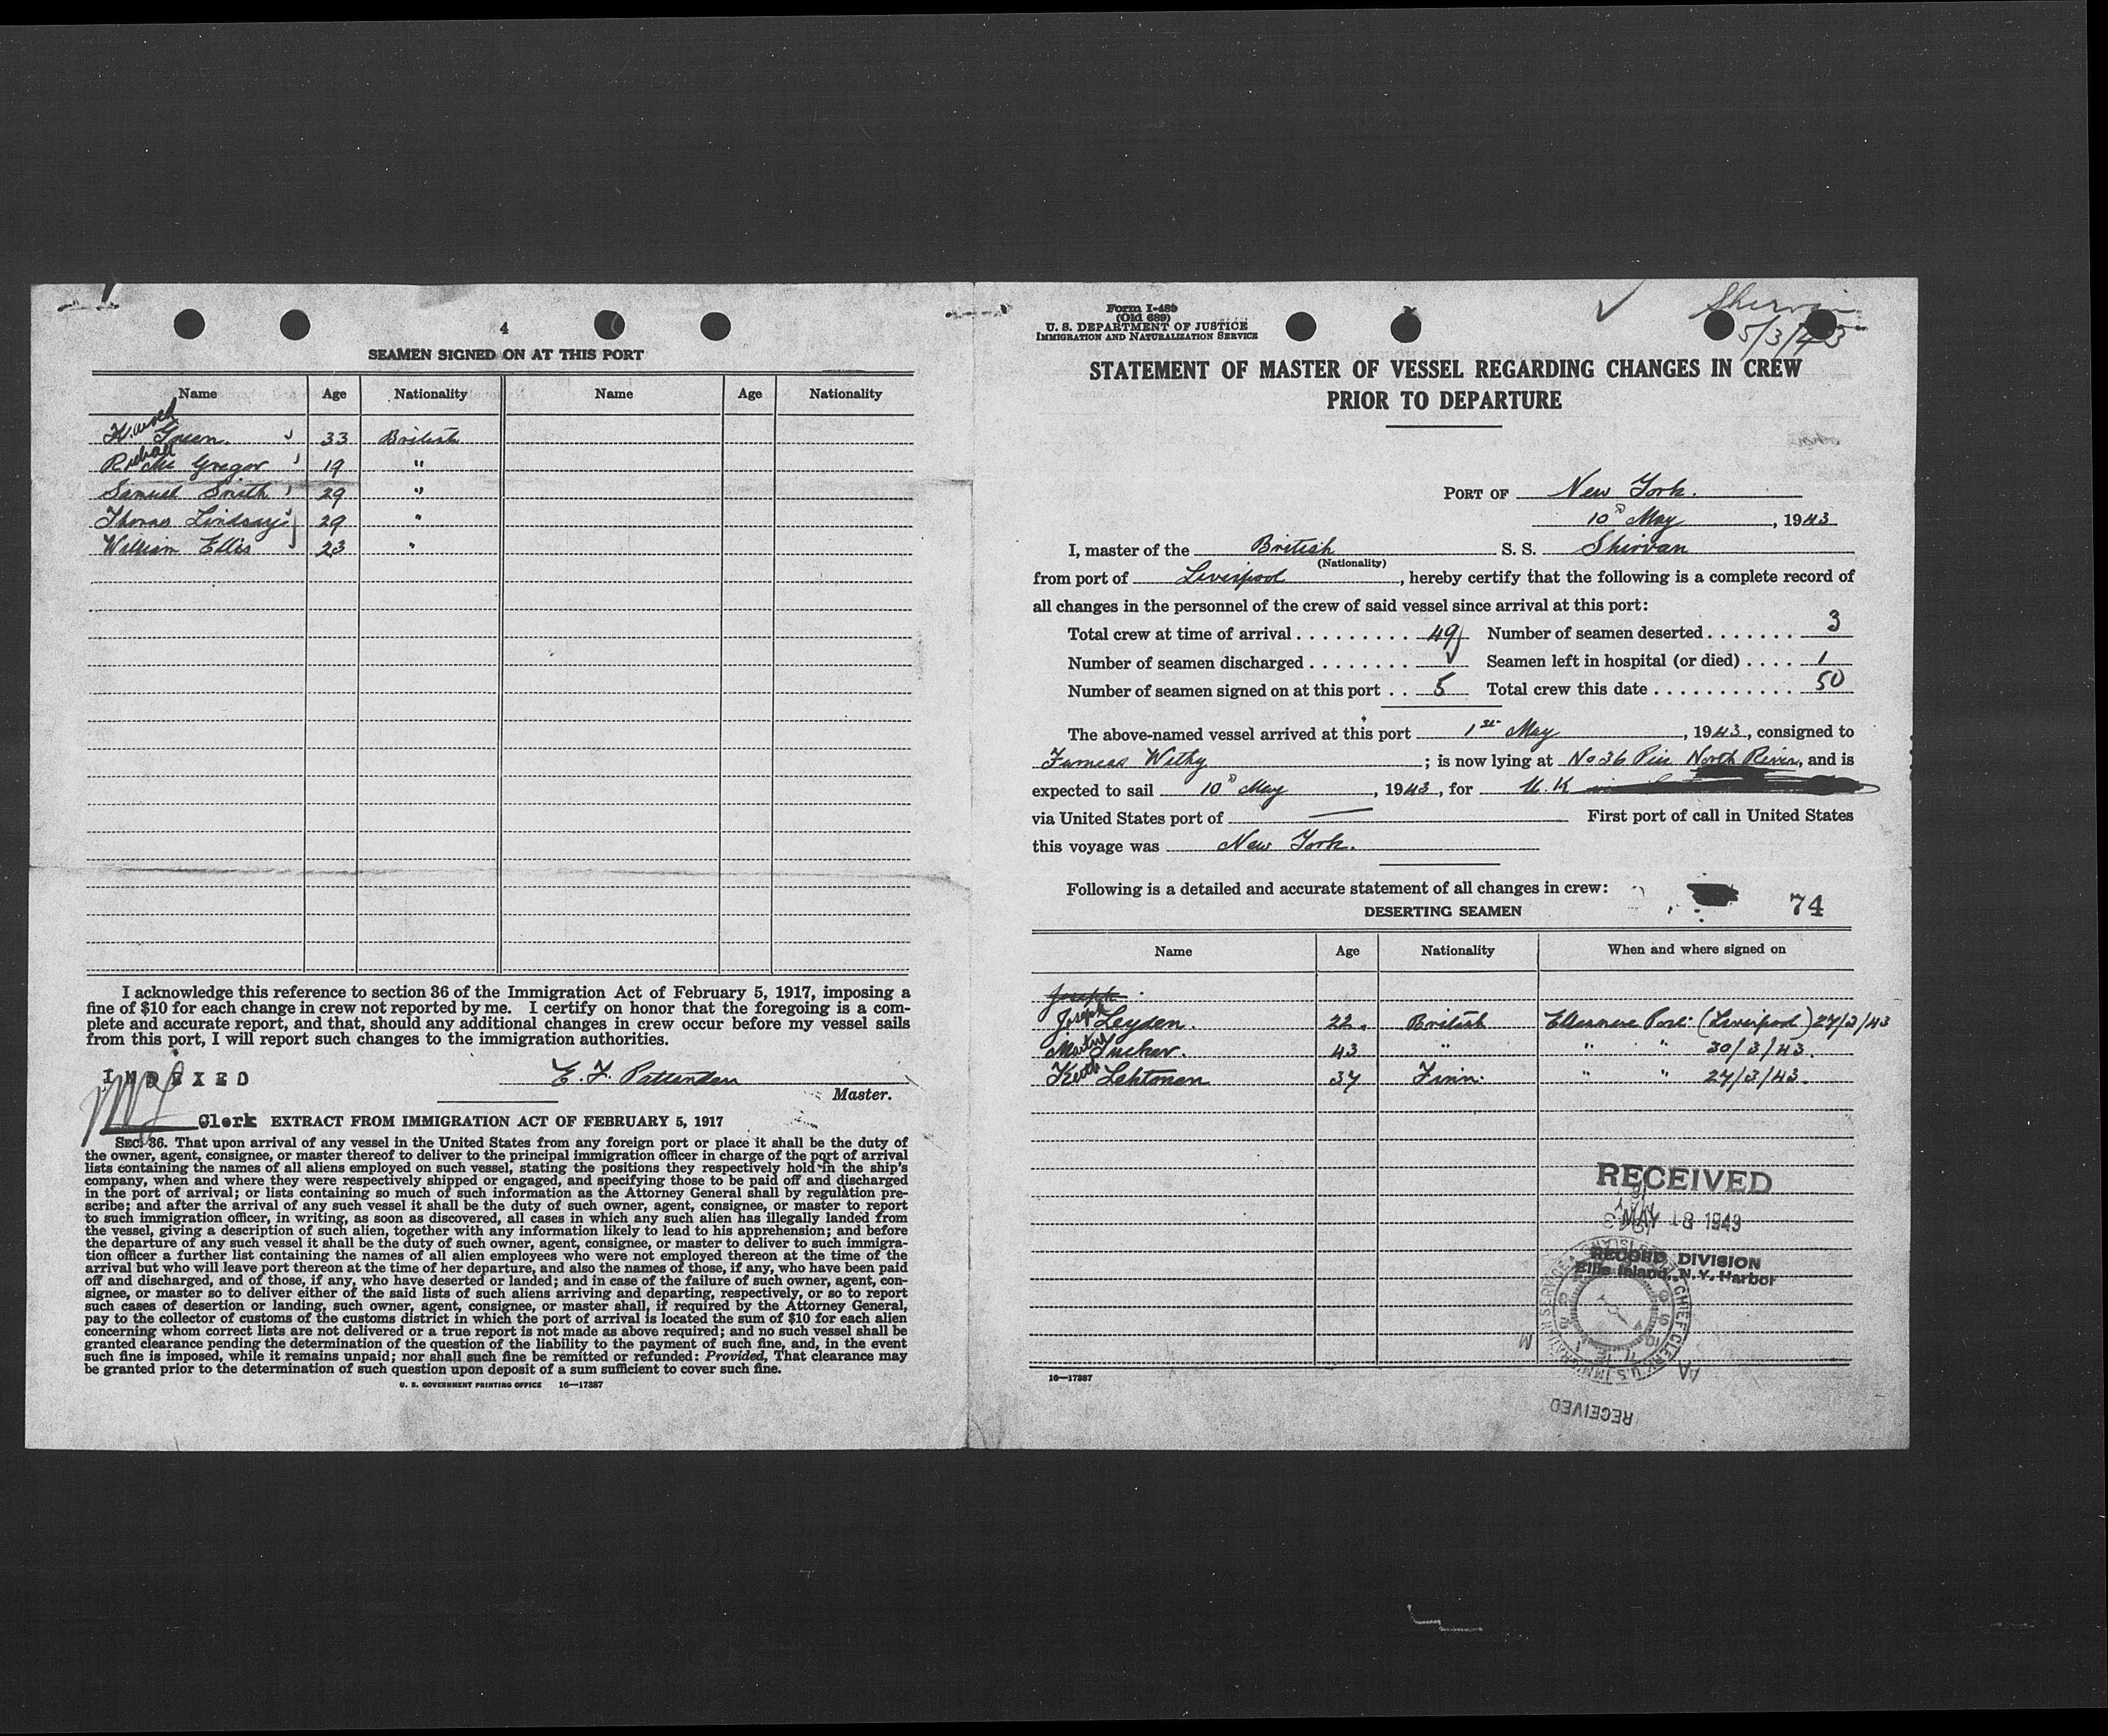 4
SEAMEN SIGNED ON AT THIS PORT
Name Age Nationality Name Age Nationality
Green 33 British
Gregor 19 "
Samuel Smith 29 "
Thomas Lindsay 29 "
William Ellis 23 "
I acknowledge this reference to section 36 of the Immigration Act of February 5, 1917, imposing a
fine of $10 for each change in crew not reported by me. I certify on honor that the foregoing is a com-
plete and accurate report, and that, should any additional changes in crew occur before my vessel sails
from this port, I will report such changes to the immigration authorities.
INDEXED
E. F. Pattenden
Master.
Clerk
EXTRACT FROM IMMIGRATION ACT OF FEBRUARY 5, 1917
SEC. 36. That upon arrival of any vessel in the United States from any foreign port or place it shall be the duty of
the owner, agent, consignee, or master thereof to deliver to the principal immigration officer in charge of the port of arrival
lists containing the names of all aliens employed on such vessel, stating the positions they respectively hold in the ship's
company, when and where they were respectively shipped or engaged, and specifying those to be paid off and discharged
in the port of arrival; or lists containing so much of such information as the Attorney General shall by regulation pre-
scribe; and after the arrival of any such vessel it shall be the duty of such owner, agent, consignee, or master to report
to such immigration officer, in writing, as soon as discovered, all cases in which any such alien has illegally landed from
the vessel, giving a description of such alien, together with any information likely to lead to his apprehension; and before
the departure of any such vessel it shall be the duty of such owner, agent, consignee, or master to deliver to such immigra-
tion officer a further list containing the names of all alien employees who were not employed thereon at the time of the
arrival but who will leave port thereon at the time of her departure, and also the names of those, if any, who have been paid
off and discharged, and of those, if any, who have deserted or landed; and in case of the failure of such owner, agent, con-
signee, or master so to deliver either of the said lists of such aliens arriving and departing, respectively, or so to report
such cases of desertion or landing, such owner, agent, consignee, or master shall, if required by the Attorney General,
pay to the collector of customs of the customs district in which the port of arrival is located the sum of $10 for each alien
concerning whom correct lists are not delivered or a true report is not made as above required; and no such vessel shall be
granted clearance pending the determination of the question of the liability to the payment of such fine, and, in the event
such fine is imposed, while it remains unpaid; nor shall such fine be remitted or refunded: Provided, That clearance may
be granted prior to the determination of such question upon deposit of a sum sufficient to cover such fine.
U. S. GOVERNMENT PRINTING OFFICE 16—17387
Form I-489
(Old 689)
U. S. DEPARTMENT OF JUSTICE
IMMIGRATION AND NATURALIZATION SERVICE
5/3/43
STATEMENT OF MASTER OF VESSEL REGARDING CHANGES IN CREW
PRIOR TO DEPARTURE
PORT OF New York.
10th May, 1943
I, master of the British S. S. Shirvan
(Nationality)
from port of Liverpool, hereby certify that the following is a complete record of
all changes in the personnel of the crew of said vessel since arrival at this port:
Total crew at time of arrival 49 Number of seamen deserted 3
Number of seamen discharged Seamen left in hospital (or died) 1
Number of seamen signed on at this port 5 Total crew this date 50
The above-named vessel arrived at this port 1st May, 1943, consigned to
Furness Withy; is now lying at No 36 Pier North River, and is
expected to sail 10th May, 1943, for U.K
via United States port of — First port of call in United States
this voyage was New York.
Following is a detailed and accurate statement of all changes in crew:
DESERTING SEAMEN 74
Name Age Nationality When and where signed on
Joseph
Joseph Leyden. 22. British Ellesmere Port (Liverpool) 27/3/43
Martin Tucker. 43 " " " 30/3/43.
Lehtonen 37 Finn. " " 27/3/43.
RECEIVED
MAY 18 1943
RECORD DIVISION
Ellis Island, N.Y. Harbor
CHIEF CLERK U.S. IMMIGRATION SERVICE
RECEIVED
16—17387